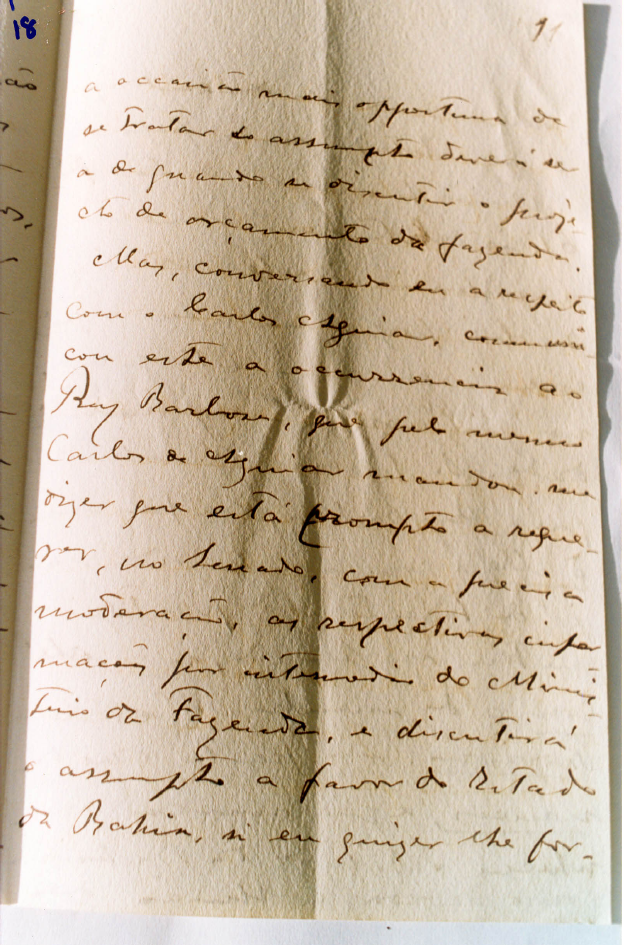 18
91
a occasião mais opportuna de
se tratar do assumpto deverá ser
a de quando se discutir o proje-
cto de orçamento da fazenda.
Mas, conversando eu a respeito
com o Carlos Aguiar, communi-
cou este a occurrencia ao
Ruy Barbosa, que pelo mesmo
Carlos de Aguiar mandou-me
dizer que está prompto a reque-
rer, no Senado, com a precisa
moderação, as respectivas infor
mações por intermedio do Minis-
terio da Fazenda, e discutirá
o assumpto a favor do Estado
da Bahia, si eu quizer lhe for-